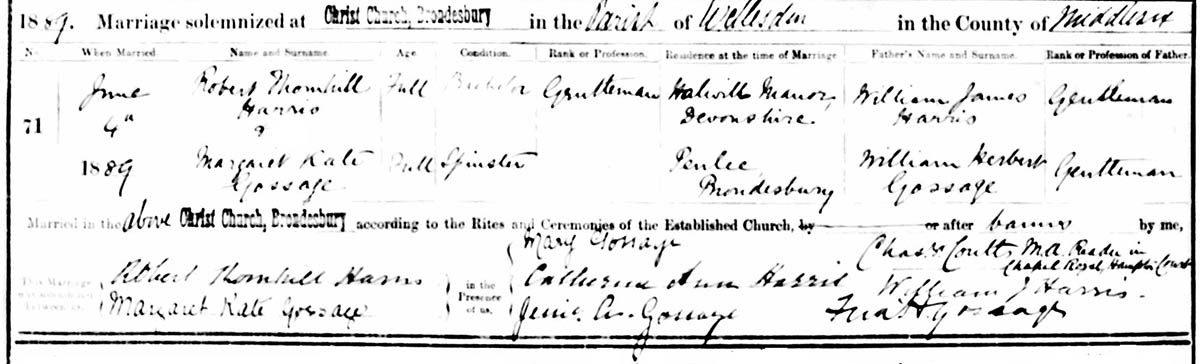 1889. Marriage solemnized at Christ Church, Brondesbury in the Parish of Willesden in the County of Middlesex
No. When Married. Name and Surname. Age Condition. Rank or Profession. Residence at the time of Marriage Father's Name and Surname. Rank or Profession of Father.
June Robert Thornhill Full Bachelor Gentleman Halwill Manor, William James Gentleman
71 4th Harris Devonshire. Harris
1889 Margaret Kate Full Spinster Penlee, William Herbert Gentleman
Gossage Brondesbury Gossage
Married in the above Christ Church, Brondesbury according to the Rites and Ceremonies of the Established Church, by or after banns by me,
Mary Gossage Chas. Coutts, M.A. Reader in
Chapel Royal, Hampton Court
This Marriage was solemnized between us, Robert Thornhill Harris in the Presence of us, Catherine Ann Harris William J Harris.
Margaret Kate Gossage Gossage Gossage